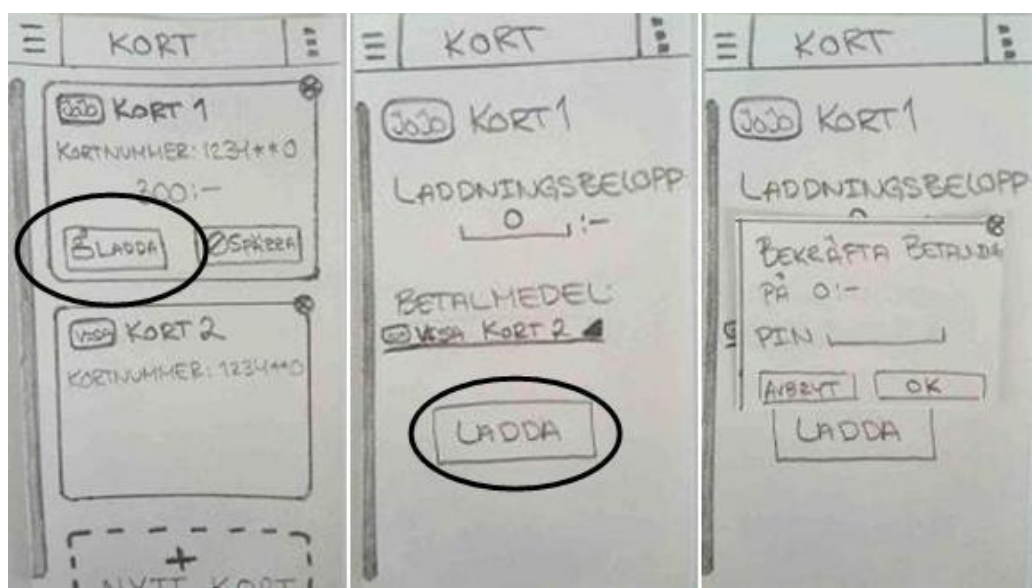 KORT
JoJo KORT 1
KORTNUMMER: 1234**0
200:-
LADDA SPÄRRA
VISA KORT 2
KORTNUMMER: 1234**0
+
NYTT KORT
KORT
JoJo KORT 1
LADDNINGSBELOPP
0 :-
BETALMEDEL:
VISA KORT 2
LADDA
KORT
JoJo KORT 1
LADDNINGSBELOPP
BEKRÄFTA BETALNING
PÅ 0:-
PIN
AVBRYT OK
LADDA